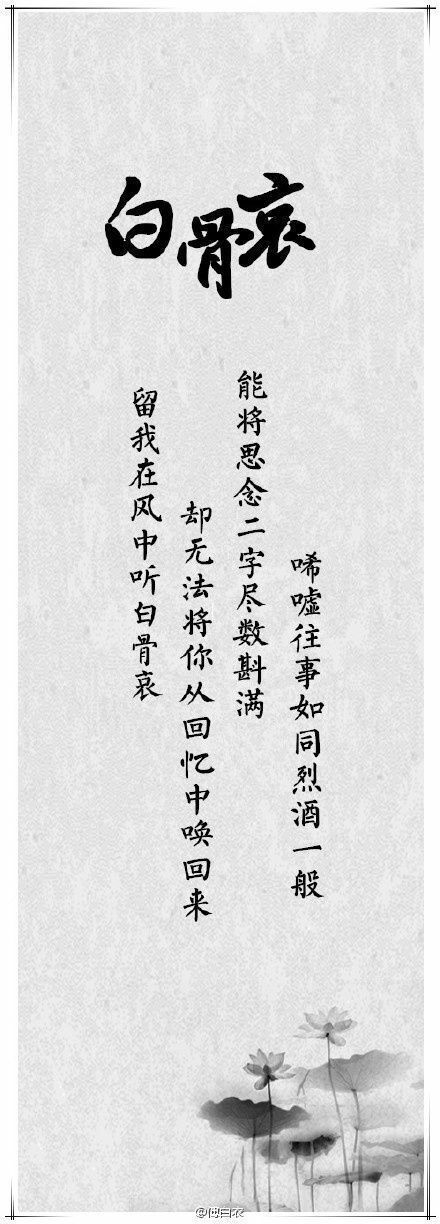 白骨哀
唏嘘往事如同烈酒一般
能将思念二字尽数斟满
却无法将你从回忆中唤回来
留我在风中听白骨哀